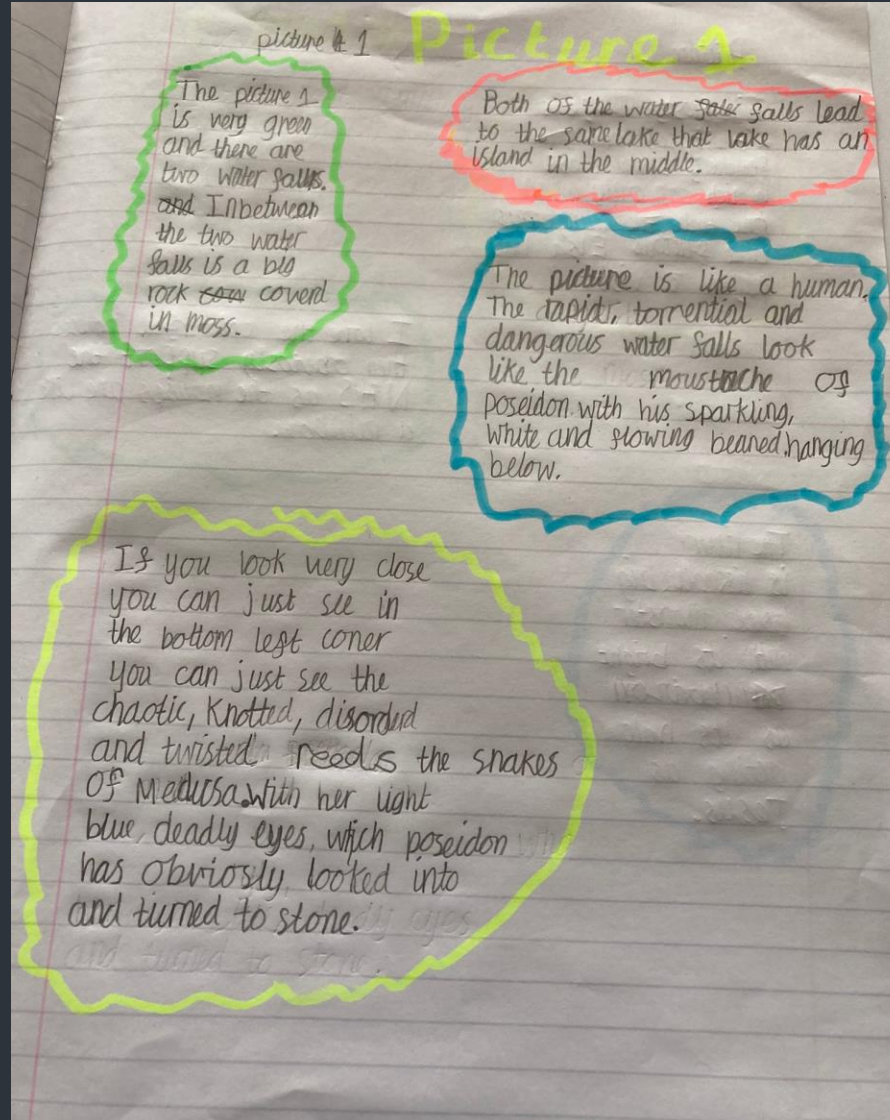 picture # 1
Picture 1
The picture 1
is very green
and there are
two water falls.
and Inbetween
the two water
falls is a big
rock coverd
in moss.
Both of the water falls lead
to the same lake that lake has an
island in the middle.
The picture is like a human.
The rapids, torrential and
dangerous water falls look
like the moustache of
poseidon with his sparkling,
white and flowing beaned, hanging
below.
If you look very close
you can just see in
the bottom left coner
you can just see the
chaotic, knotted, disorderd
and twisted reeds the snakes
of Medusa. With her light
blue, deadly eyes, which poseidon
has obviosly looked into
and turned to stone.